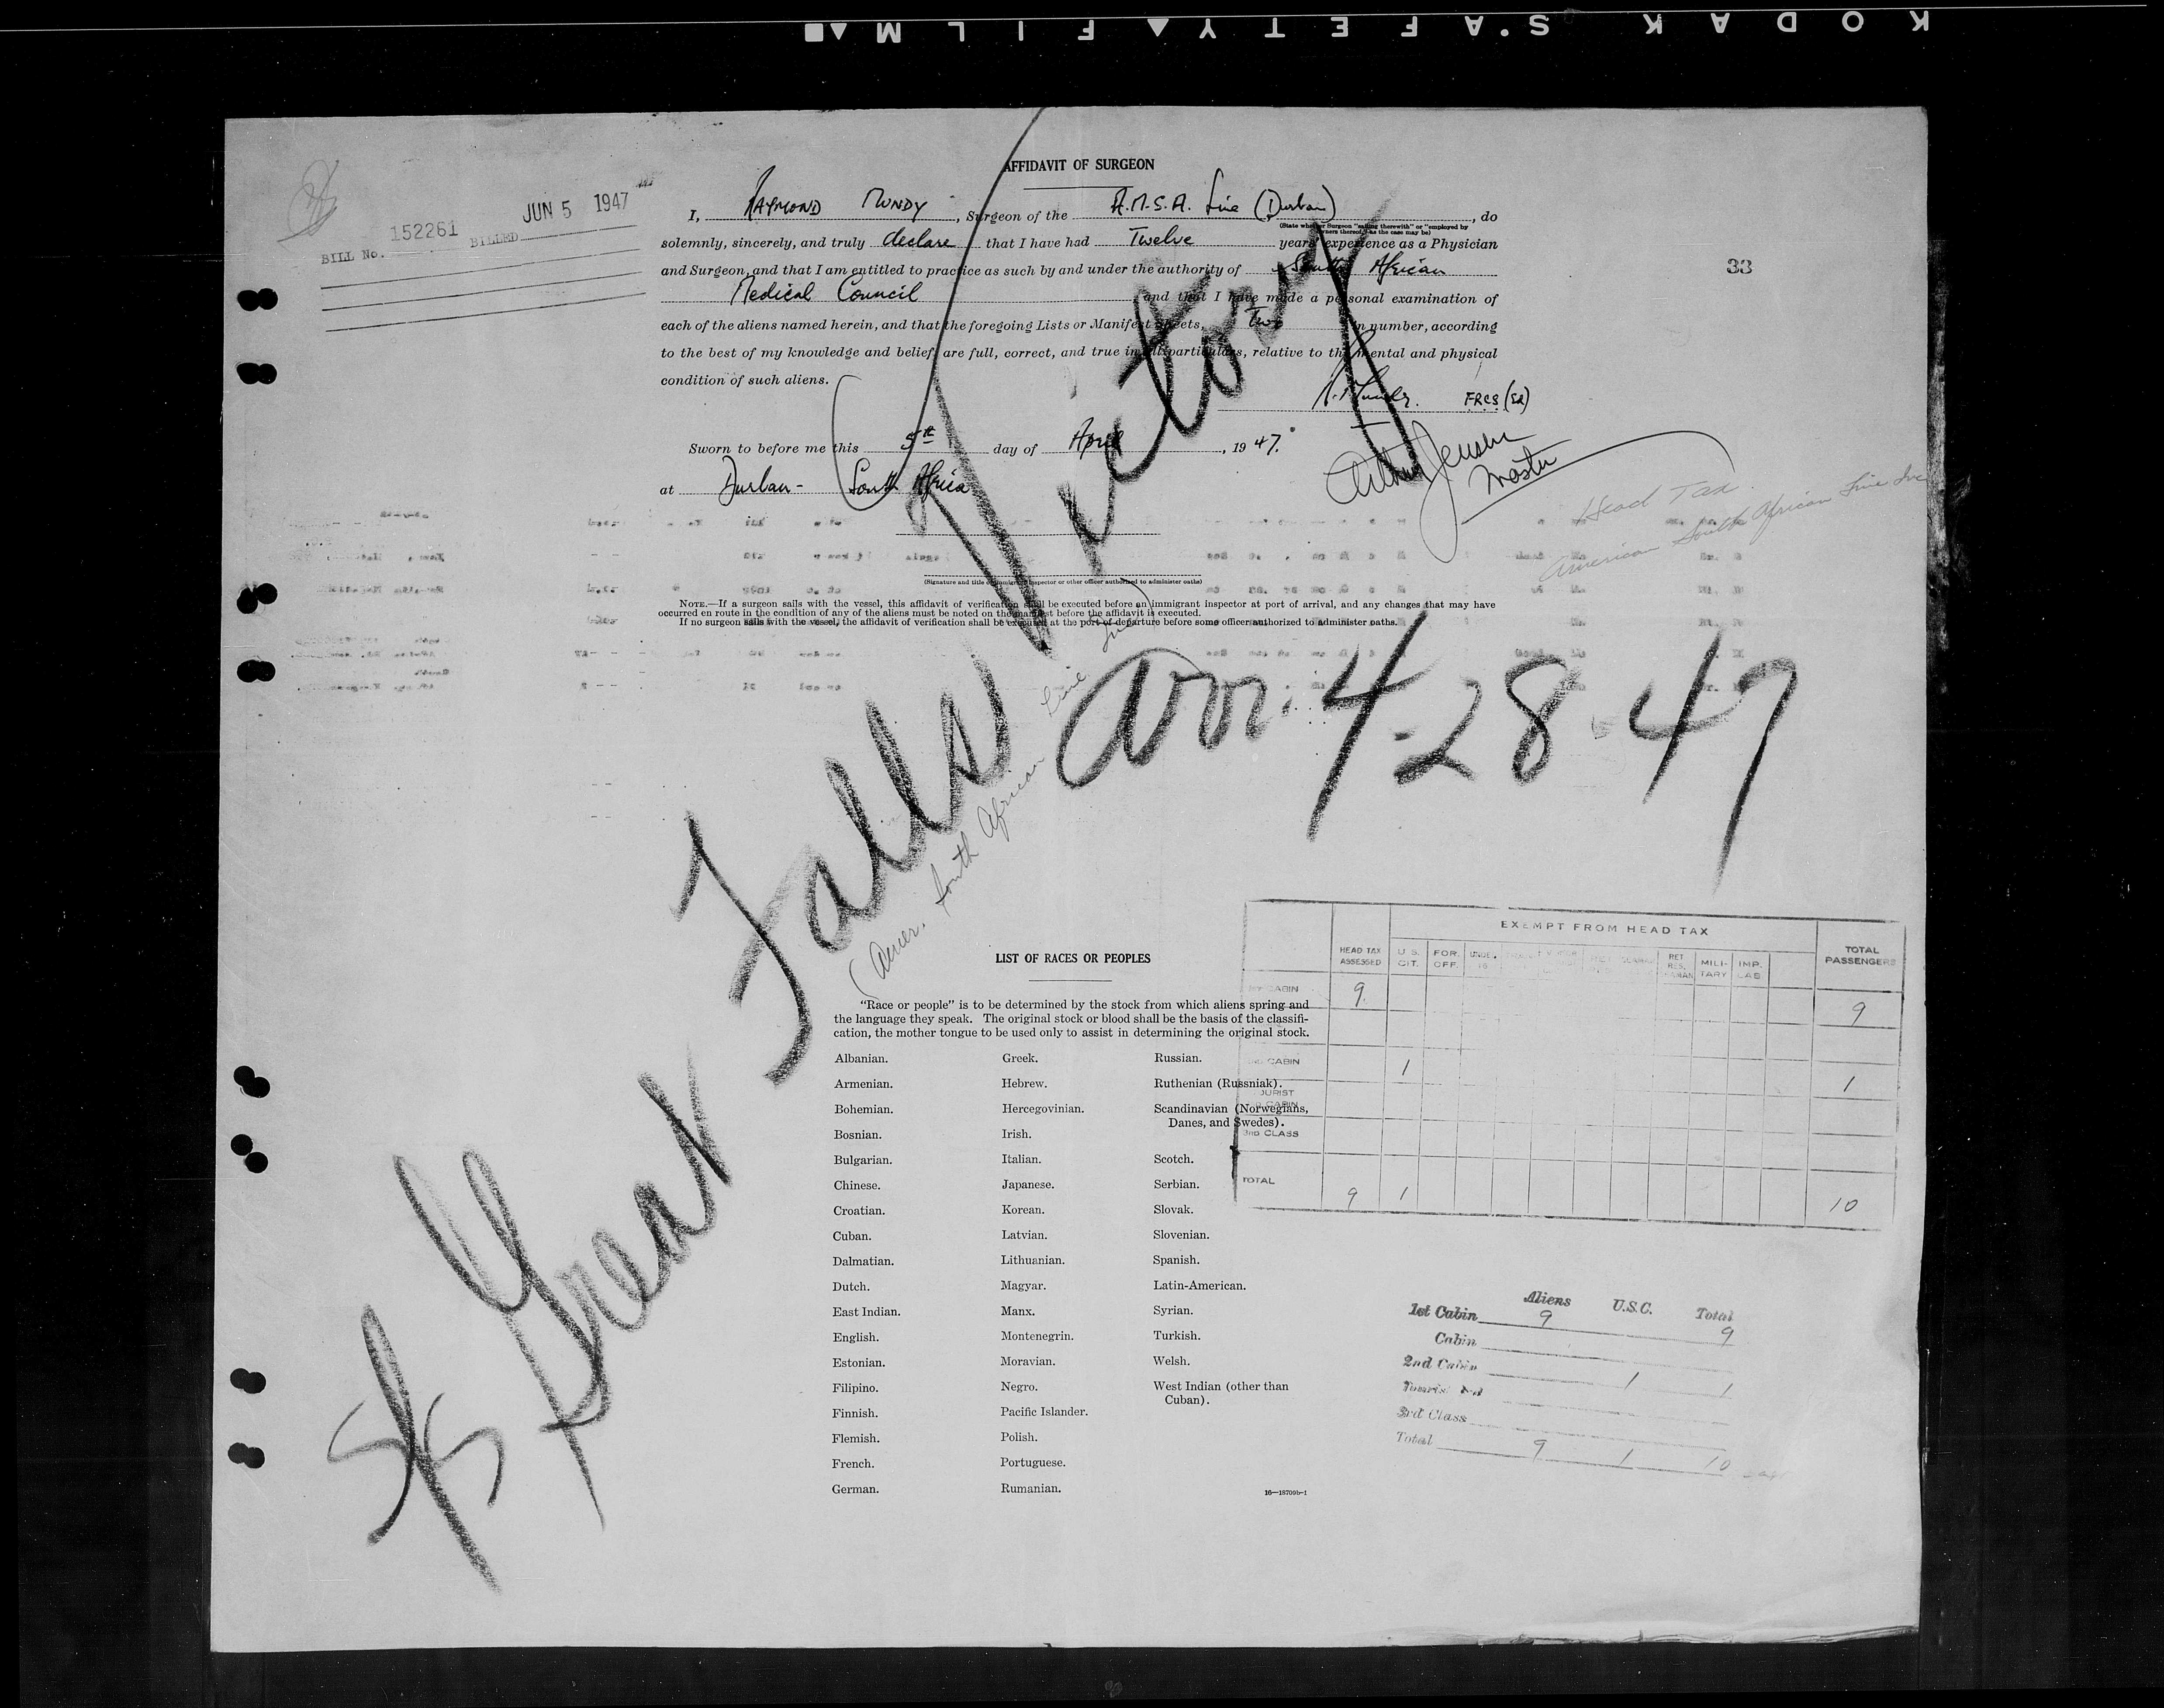 KODAK S'AFETY▲FILM▲■
AFFIDAVIT OF SURGEON
JUN 5 1947
BILL No. 152261 BILLED
33
I, RAYMOND MUNDY, Surgeon of the A.M.S.A. Line (Durban), do
(State whether Surgeon "sailing therewith" or "employed by
owners thereof," as the case may be)
solemnly, sincerely, and truly declare that I have had Twelve years' experience as a Physician
and Surgeon, and that I am entitled to practice as such by and under the authority of South African
Medical Council, and that I have made a personal examination of
each of the aliens named herein, and that the foregoing Lists or Manifest Sheets, Two in number, according
to the best of my knowledge and belief, are full, correct, and true in all particulars, relative to the mental and physical
condition of such aliens.
R. Mundy. FRCS (Ed)
Sworn to before me this 5th day of April, 1947.
Arthur Jensen
Master
at Durban - South Africa
Head Tax
American South African Line Inc
(Signature and title of immigrant inspector or other officer authorized to administer oaths)
NOTE.—If a surgeon sails with the vessel, this affidavit of verification shall be executed before an immigrant inspector at port of arrival, and any changes that may have
occurred en route in the condition of any of the aliens must be noted on the manifest before the affidavit is executed.
If no surgeon sails with the vessel, the affidavit of verification shall be executed at the port of departure before some officer authorized to administer oaths.
S/S Great Falls Victory
arr. 4-28-47
(Amer. South African Line Inc)
LIST OF RACES OR PEOPLES
"Race or people" is to be determined by the stock from which aliens spring and
the language they speak. The original stock or blood shall be the basis of the classifi-
cation, the mother tongue to be used only to assist in determining the original stock.
Albanian. Greek. Russian.
Armenian. Hebrew. Ruthenian (Russniak).
Bohemian. Hercegovinian. Scandinavian (Norwegians,
Danes, and Swedes).
Bosnian. Irish.
Bulgarian. Italian. Scotch.
Chinese. Japanese. Serbian.
Croatian. Korean. Slovak.
Cuban. Latvian. Slovenian.
Dalmatian. Lithuanian. Spanish.
Dutch. Magyar. Latin-American.
East Indian. Manx. Syrian.
English. Montenegrin. Turkish.
Estonian. Moravian. Welsh.
Filipino. Negro. West Indian (other than
Cuban).
Finnish. Pacific Islander.
Flemish. Polish.
French. Portuguese.
German. Rumanian.
16—18709b-1
EXEMPT FROM HEAD TAX
HEAD TAX ASSESSED U.S. CIT. FOR. OFF. RET. RES. MILI-TARY IMP. LAB TOTAL PASSENGERS
CABIN 9 9
CABIN 1 1
3RD CLASS
TOTAL 9 1 10
Aliens U.S.C. Total
1st Cabin 9 9
Cabin
2nd Cabin 1 1
3rd Class
Total 9 1 10